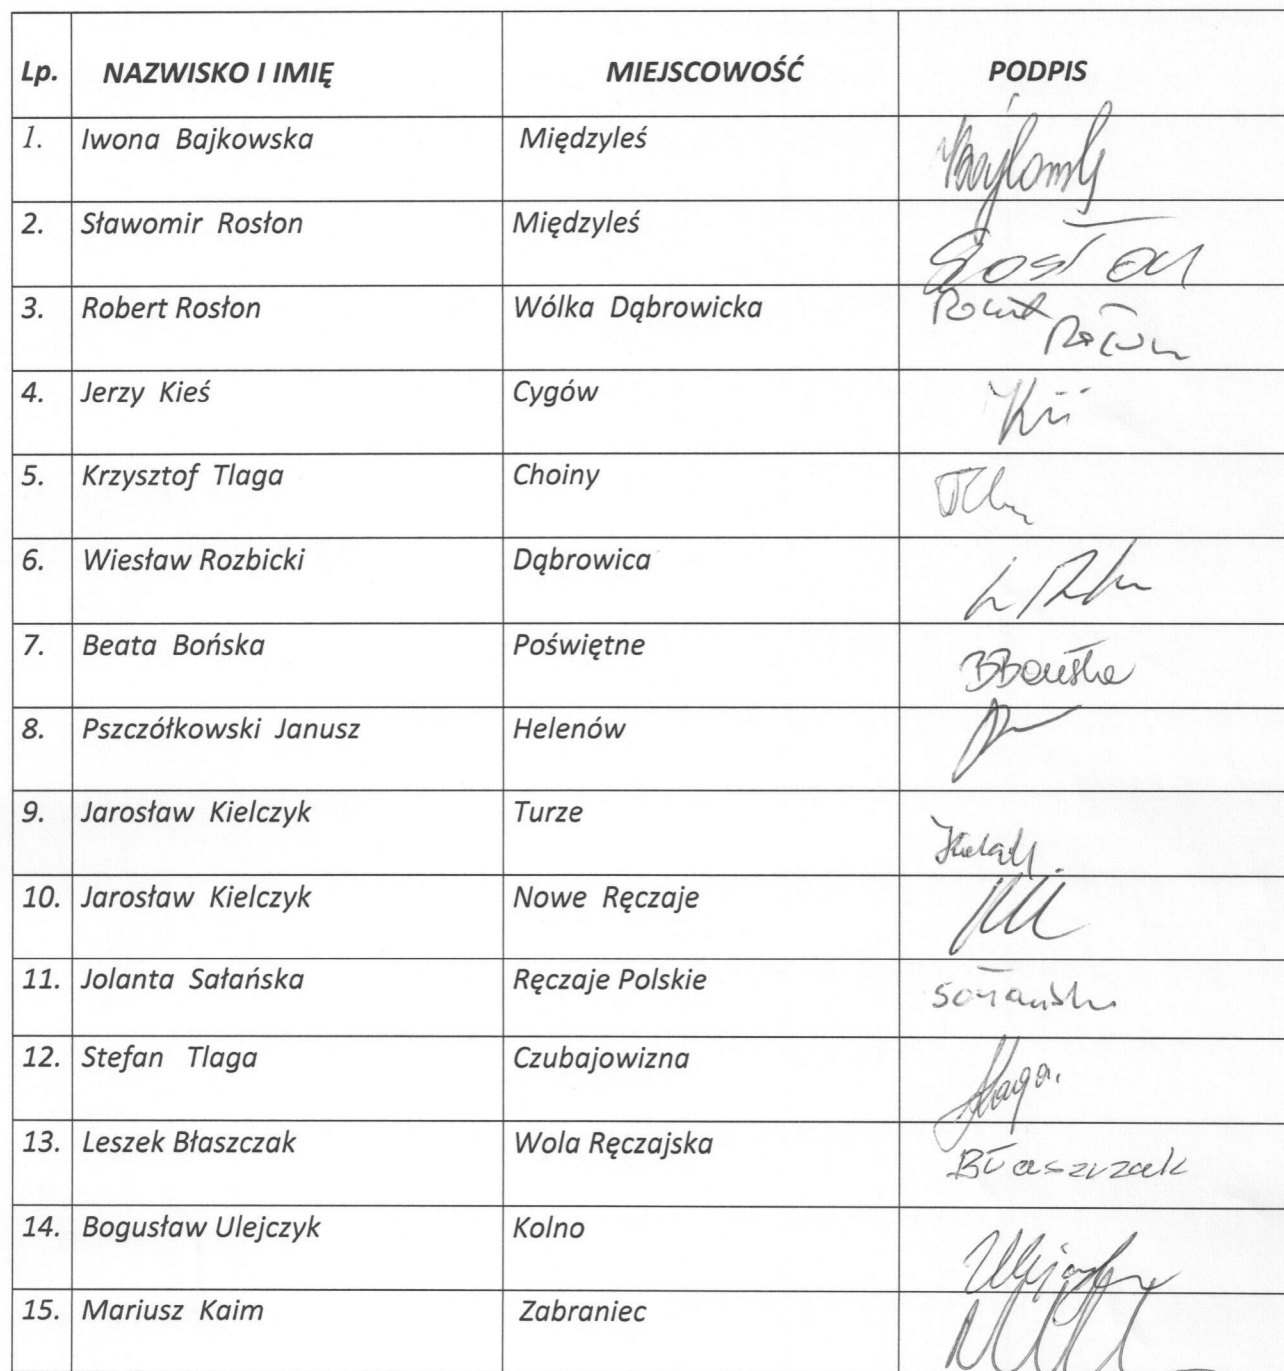 Lp. NAZWISKO I IMIĘ MIEJSCOWOŚĆ PODPIS
1. Iwona Bajkowska Międzyleś
2. Sławomir Rosłon Międzyleś Rosłon
3. Robert Rosłon Wólka Dąbrowicka
4. Jerzy Kieś Cygów
5. Krzysztof Tlaga Choiny
6. Wiesław Rozbicki Dąbrowica
7. Beata Bońska Poświętne BBońska
8. Pszczółkowski Janusz Helenów
9. Jarosław Kielczyk Turze
10. Jarosław Kielczyk Nowe Ręczaje
11. Jolanta Sałańska Ręczaje Polskie Sałańska
12. Stefan Tlaga Czubajowizna
13. Leszek Błaszczak Wola Ręczajska Błaszczak
14. Bogusław Ulejczyk Kolno
15. Mariusz Kaim Zabraniec